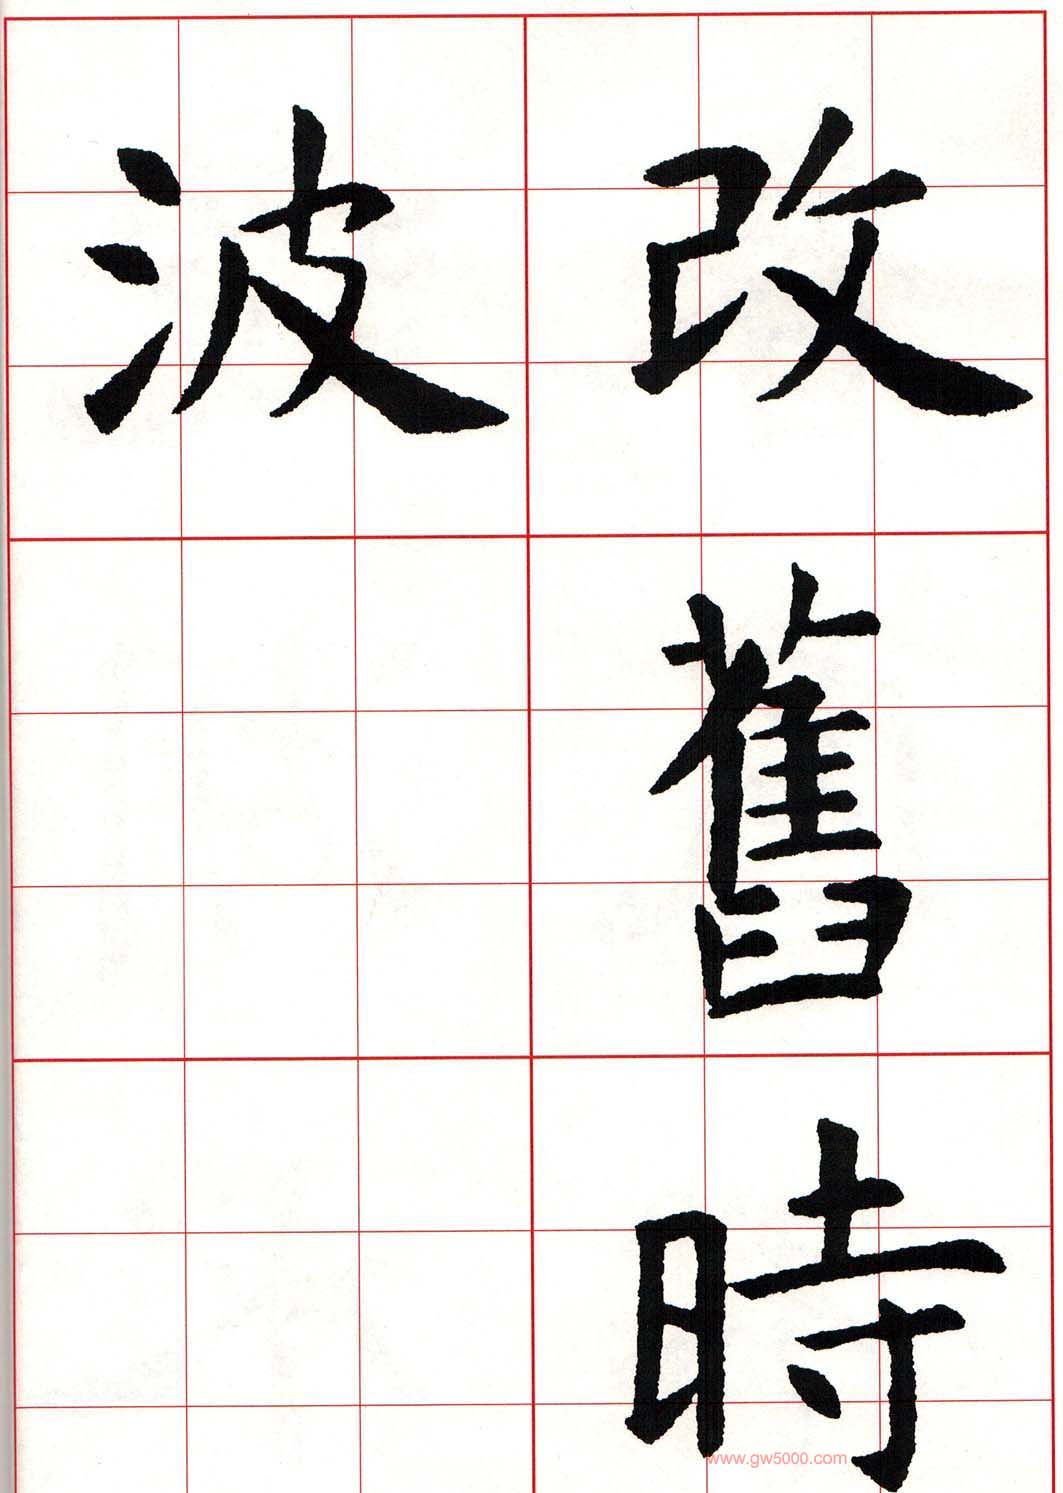 改舊時
波
www.gw5000.com